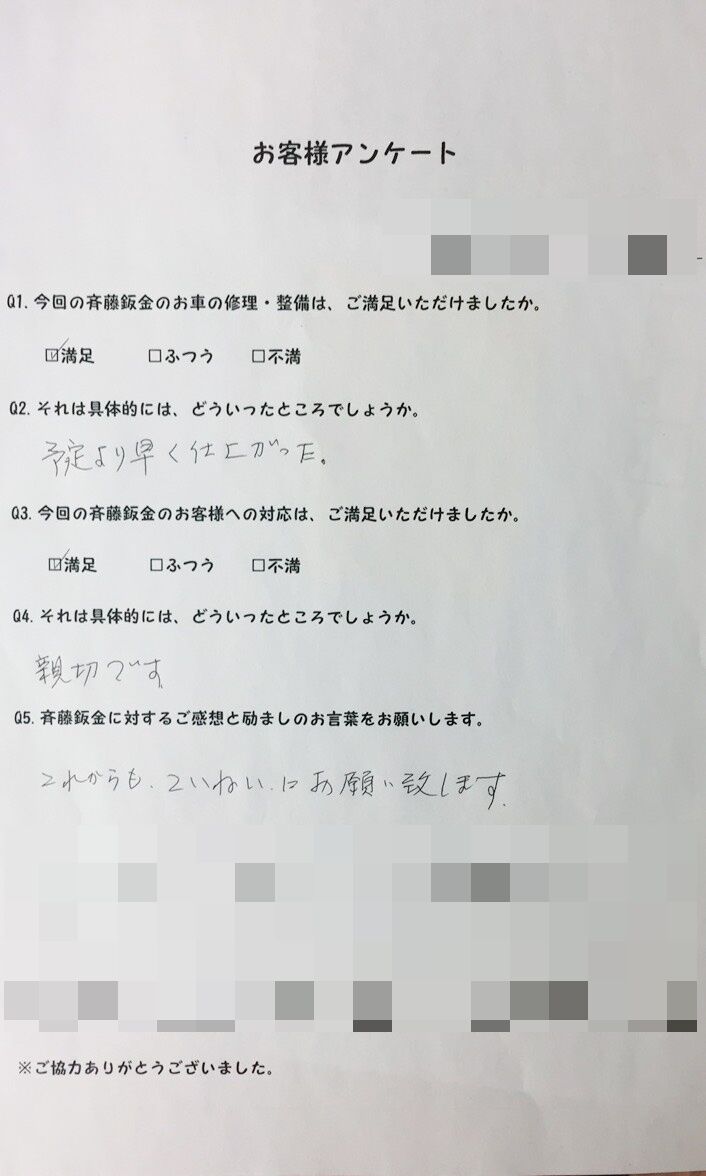 お客様アンケート
Q1. 今回の斉藤鈑金のお車の修理・整備は、ご満足いただけましたか。
☑満足 □ふつう □不満
Q2. それは具体的には、どういったところでしょうか。
予定より早く仕上がった。
Q3. 今回の斉藤鈑金のお客様への対応は、ご満足いただけましたか。
☑満足 □ふつう □不満
Q4. それは具体的には、どういったところでしょうか。
親切です
Q5. 斉藤鈑金に対するご感想と励ましのお言葉をお願いします。
これからも、ていねいにお願い致します。
※ご協力ありがとうございました。